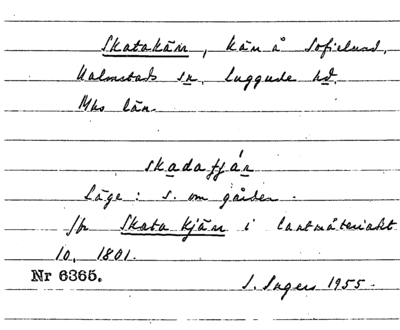 Skatakärr, kärr å Sofielund,
Halmstads sn, Luggude hd.
Mhs län.
skadaʃʃár
Läge: S. om gården.
fr Skata kjärr i lantmäteriakt
10, 1801.
Nr 6365.
S. Ingers 1955.